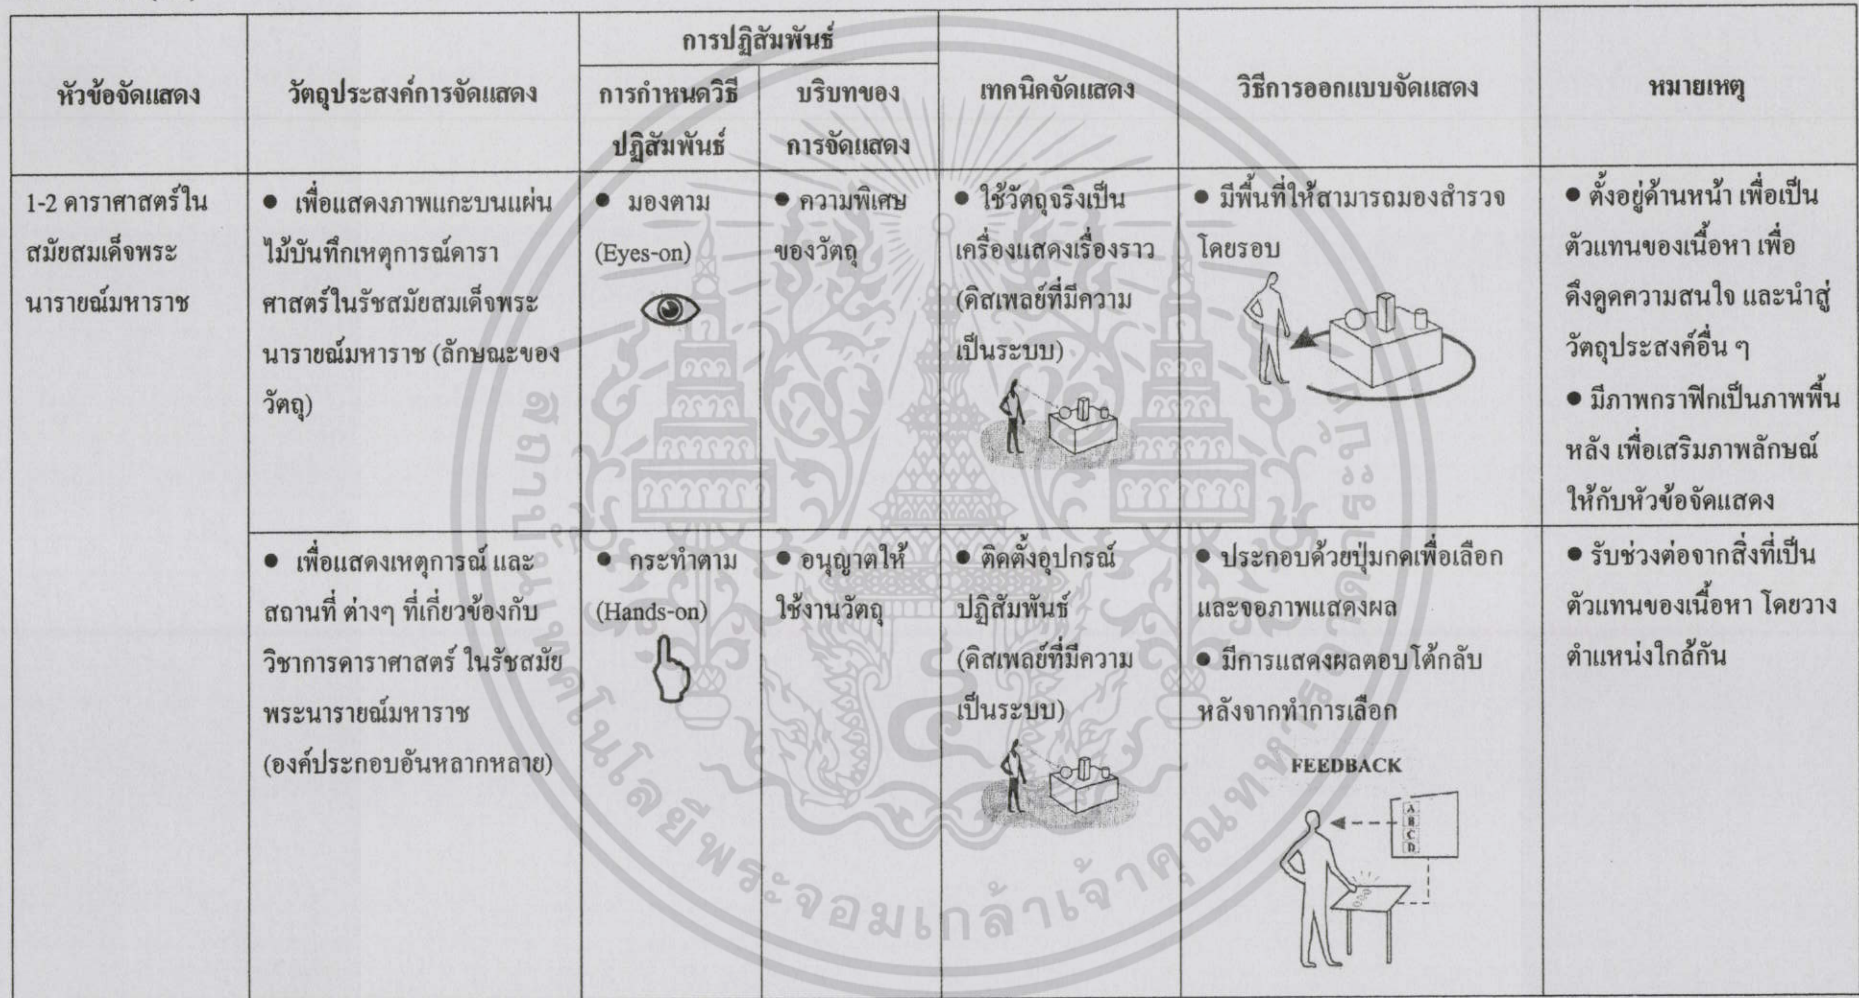 หัวข้อจัดแสดง
วัตถุประสงค์การจัดแสดง
การปฏิสัมพันธ์
การกำหนดวิธี
ปฏิสัมพันธ์
บริบทของ
การจัดแสดง
เทคนิคจัดแสดง
วิธีการออกแบบจัดแสดง
หมายเหตุ
1-2 ดาราศาสตร์ใน
สมัยสมเด็จพระ
นารายณ์มหาราช
● เพื่อแสดงภาพแกะบนแผ่น
ไม้บันทึกเหตุการณ์ดารา
ศาสตร์ในรัชสมัยสมเด็จพระ
นารายณ์มหาราช (ลักษณะของ
วัตถุ)
● มองตาม
(Eyes-on)
● ความพิเศษ
ของวัตถุ
● ใช้วัตถุจริงเป็น
เครื่องแสดงเรื่องราว
(ดิสเพลย์ที่มีความ
เป็นระบบ)
● มีพื้นที่ให้สามารถมองสำรวจ
โดยรอบ
● ตั้งอยู่ด้านหน้า เพื่อเป็น
ตัวแทนของเนื้อหา เพื่อ
ดึงดูดความสนใจ และนำสู่
วัตถุประสงค์อื่น ๆ
● มีภาพกราฟิกเป็นภาพพื้น
หลัง เพื่อเสริมภาพลักษณ์
ให้กับหัวข้อจัดแสดง
● เพื่อแสดงเหตุการณ์ และ
สถานที่ ต่างๆ ที่เกี่ยวข้องกับ
วิชาการดาราศาสตร์ ในรัชสมัย
พระนารายณ์มหาราช
(องค์ประกอบอันหลากหลาย)
● กระทำตาม
(Hands-on)
● อนุญาตให้
ใช้งานวัตถุ
● ติดตั้งอุปกรณ์
ปฏิสัมพันธ์
(ดิสเพลย์ที่มีความ
เป็นระบบ)
● ประกอบด้วยปุ่มกดเพื่อเลือก
และจอภาพแสดงผล
● มีการแสดงผลตอบโต้กลับ
หลังจากทำการเลือก
FEEDBACK
A
B
C
D
● รับช่วงต่อจากสิ่งที่เป็น
ตัวแทนของเนื้อหา โดยวาง
ตำแหน่งใกล้กัน
สถาบันเทคโนโลยีพระจอมเกล้าเจ้าคุณทหารลาดกระบัง